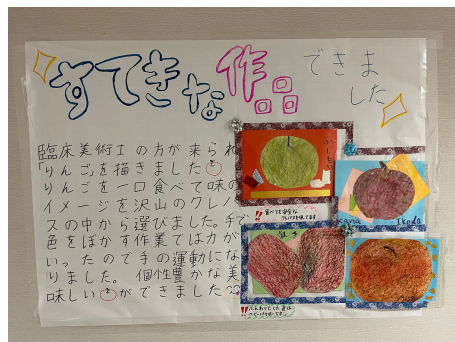 すてきな作品
できま
した
臨床美術士の方が来られ
「りんご」を描きました
りんごを一口食べて味の
イメージを沢山のクレパ
スの中から選びました。手で
色をぼかす作業では力が
いったので手の運動にな
りました。個性豊かな美
味しい ができました
!!
Kana Ikeda
!!